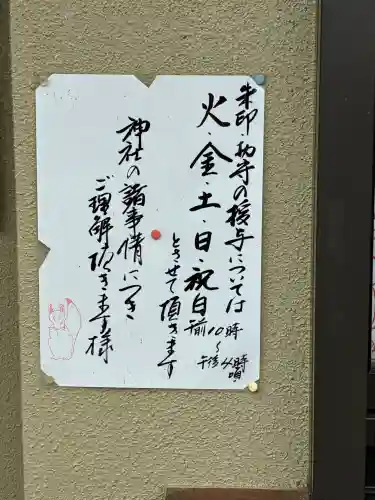 朱印・御守の授与については
火・金・土・日・祝日
前10時〜午後4時頃
とさせて頂きます
神社の諸事情につき
ご理解頂きます様